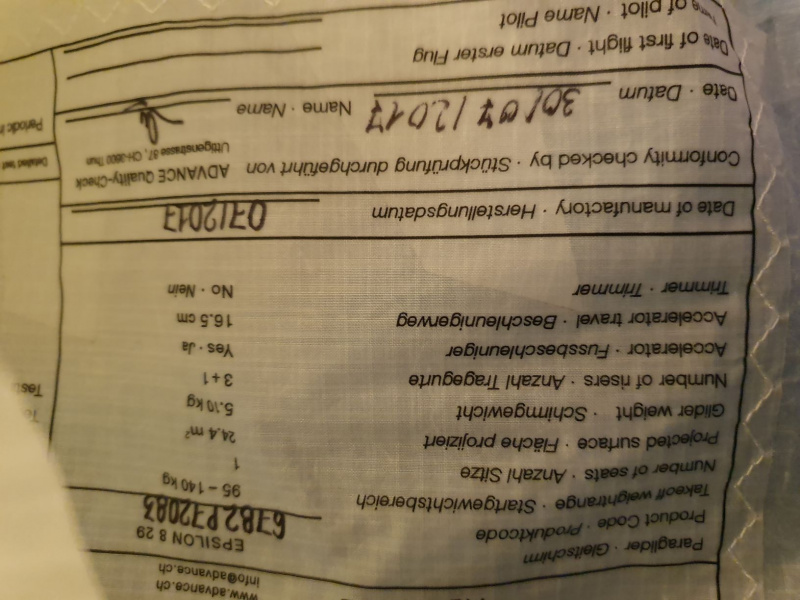 www.advance.ch
info@advance.ch
Paraglider · Gleitschirm EPSILON 8 29
Product Code · Produktcode 6782P72083
Takeoff weightrange · Startgewichtsbereich 95 – 140 kg
Number of seats · Anzahl Sitze 1
Projected surface · Fläche projiziert 24.4 m²
Glider weight · Schirmgewicht 5.10 kg
Number of risers · Anzahl Tragegurte 3+1
Accelerator · Fussbeschleuniger Yes · Ja
Accelerator travel · Beschleunigerweg 16.5 cm
Trimmer · Trimmer No · Nein
Date of manufactory · Herstellungsdatum 07/2017
Conformity checked by · Stückprüfung durchgeführt von ADVANCE Quality-Check
Uttigenstrasse 87, CH-3600 Thun
Date · Datum 30/07/2017 Name · Name
Date of first flight · Datum erster Flug
Name of pilot · Name Pilot
Detailed test
Periodic